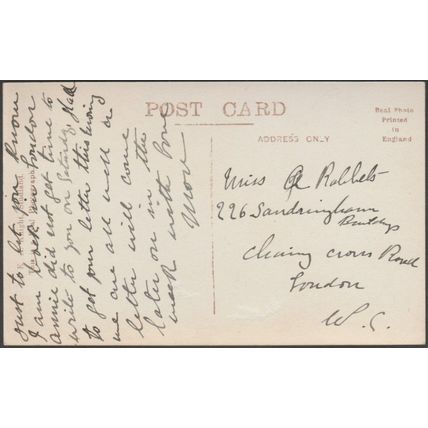 POST CARD
Real Photo
Printed
in
England
ADDRESS ONLY
Just to let you know
I am back in London
annie did not get time to
write to you on Saturday Glad
to get your letter this morning
we are all well
letter will come
later on in the
week with
Miss A Rabbets
226 Sandringham
Buildings
Charing Cross Road
London
W.C.